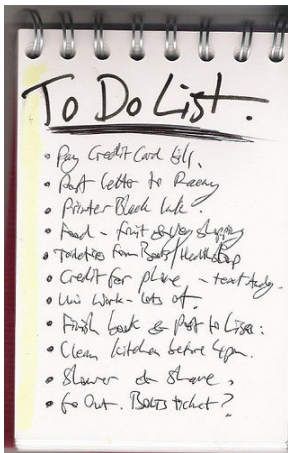 To Do List.
• Pay Credit Card Bill.
• Post letter to
• Printer Black Ink.
• Food - fruit & veg shopping
• Toiletries from Boots/Healthshop
• Credit for phone - text Andy.
• Uni Work - lots of.
• Finish book & Post to Lisa:
• Clean kitchen before 4pm.
• Shower & Shave.
• Go Out. ticket?